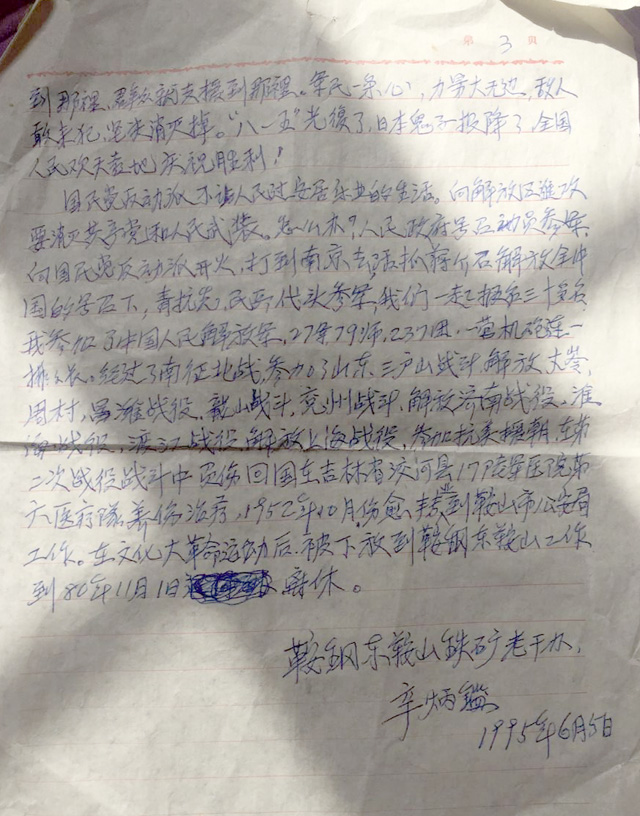 第 3 页
到那里,群众就支援到那里。军民一条心,力量大无边,敌人
敢来犯,坚决消灭掉。"八一五"光復了,日本鬼子投降了,全国
人民欢天喜地庆祝胜利!
国民党反动派不让人民过安居乐业的生活。向解放区进攻
要消灭共产党和人民武装。怎么办?人民政府号召动员参军,
向国民党反动派开火,打到南京去活抓蒋介石解放全中
国的号召下,青抗先,民兵,代头参军,我们一起报名三十多名
我参加了中国人民解放军,27军79师,237团,一营机砲连一
排。经过了南征北战,参加了山东,三户山战斗,解放
周村,昌潍战役,龍山战斗,兖州战斗,解放济南战役,淮
海战役,渡江战役,解放上海战役,参加抗美援朝,在第
二次战役战斗中负伤回国在吉林省 河县17陸军医院第
六医疗隊养伤治疗,1952年10月伤愈,转到鞍山市公安局
工作。在文化大革命运动后,被下放到鞍钢东鞍山工作
到80年11月1日 离休。
鞍钢东鞍山铁矿老干办,
辛炳鑑
1995年6月5日